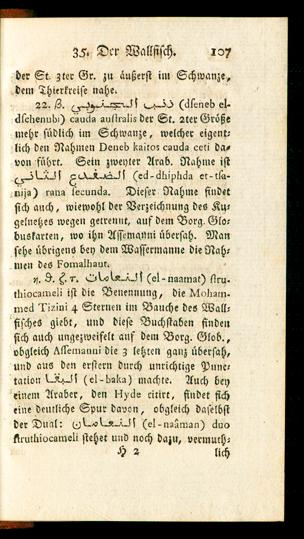 35. Der Wallfisch. 107
der St. 3ter Gr. zu äußerst im Schwanze,
dem Thierkreise nahe.
22. β. ذنب الجنوبي (dseneb el-
dschenubi) cauda australis der St. 2ter Größe
mehr südlich im Schwanze, welcher eigent-
lich den Nahmen Deneb kaitos cauda ceti da-
von führt. Sein zweyter Arab. Nahme ist
الضفدع الثاني (ed-dhiphda et-tsa-
nija) rana secunda. Dieser Nahme findet
sich auch, wiewohl der Verzeichnung des Ku-
gelnetzes wegen getrennt, auf dem Borg. Glo-
buskarten, wo ihn Assemanni übersah. Man
sehe übrigens bey dem Wassermanne die Nah-
men des Fomalhaut.
η. θ. ζ. τ. النعامات (el-naamat) stru-
thiocameli ist die Benennung, die Moham-
med Tizini 4 Sternen im Bauche des Wall-
fisches giebt, und diese Buchstaben finden
sich auch ungezweifelt auf dem Borg. Glob.,
obgleich Assemanni die 3 letzten ganz übersah,
und aus den erstern durch unrichtige Punc-
tation البقا (el-baka) machte. Auch bey
einem Araber, den Hyde citirt, findet sich
eine deutliche Spur davon, obgleich daselbst
der Dual: النعامان (el-naâman) duo
struthiocameli stehet und noch dazu, vermuth-
H 2 lich